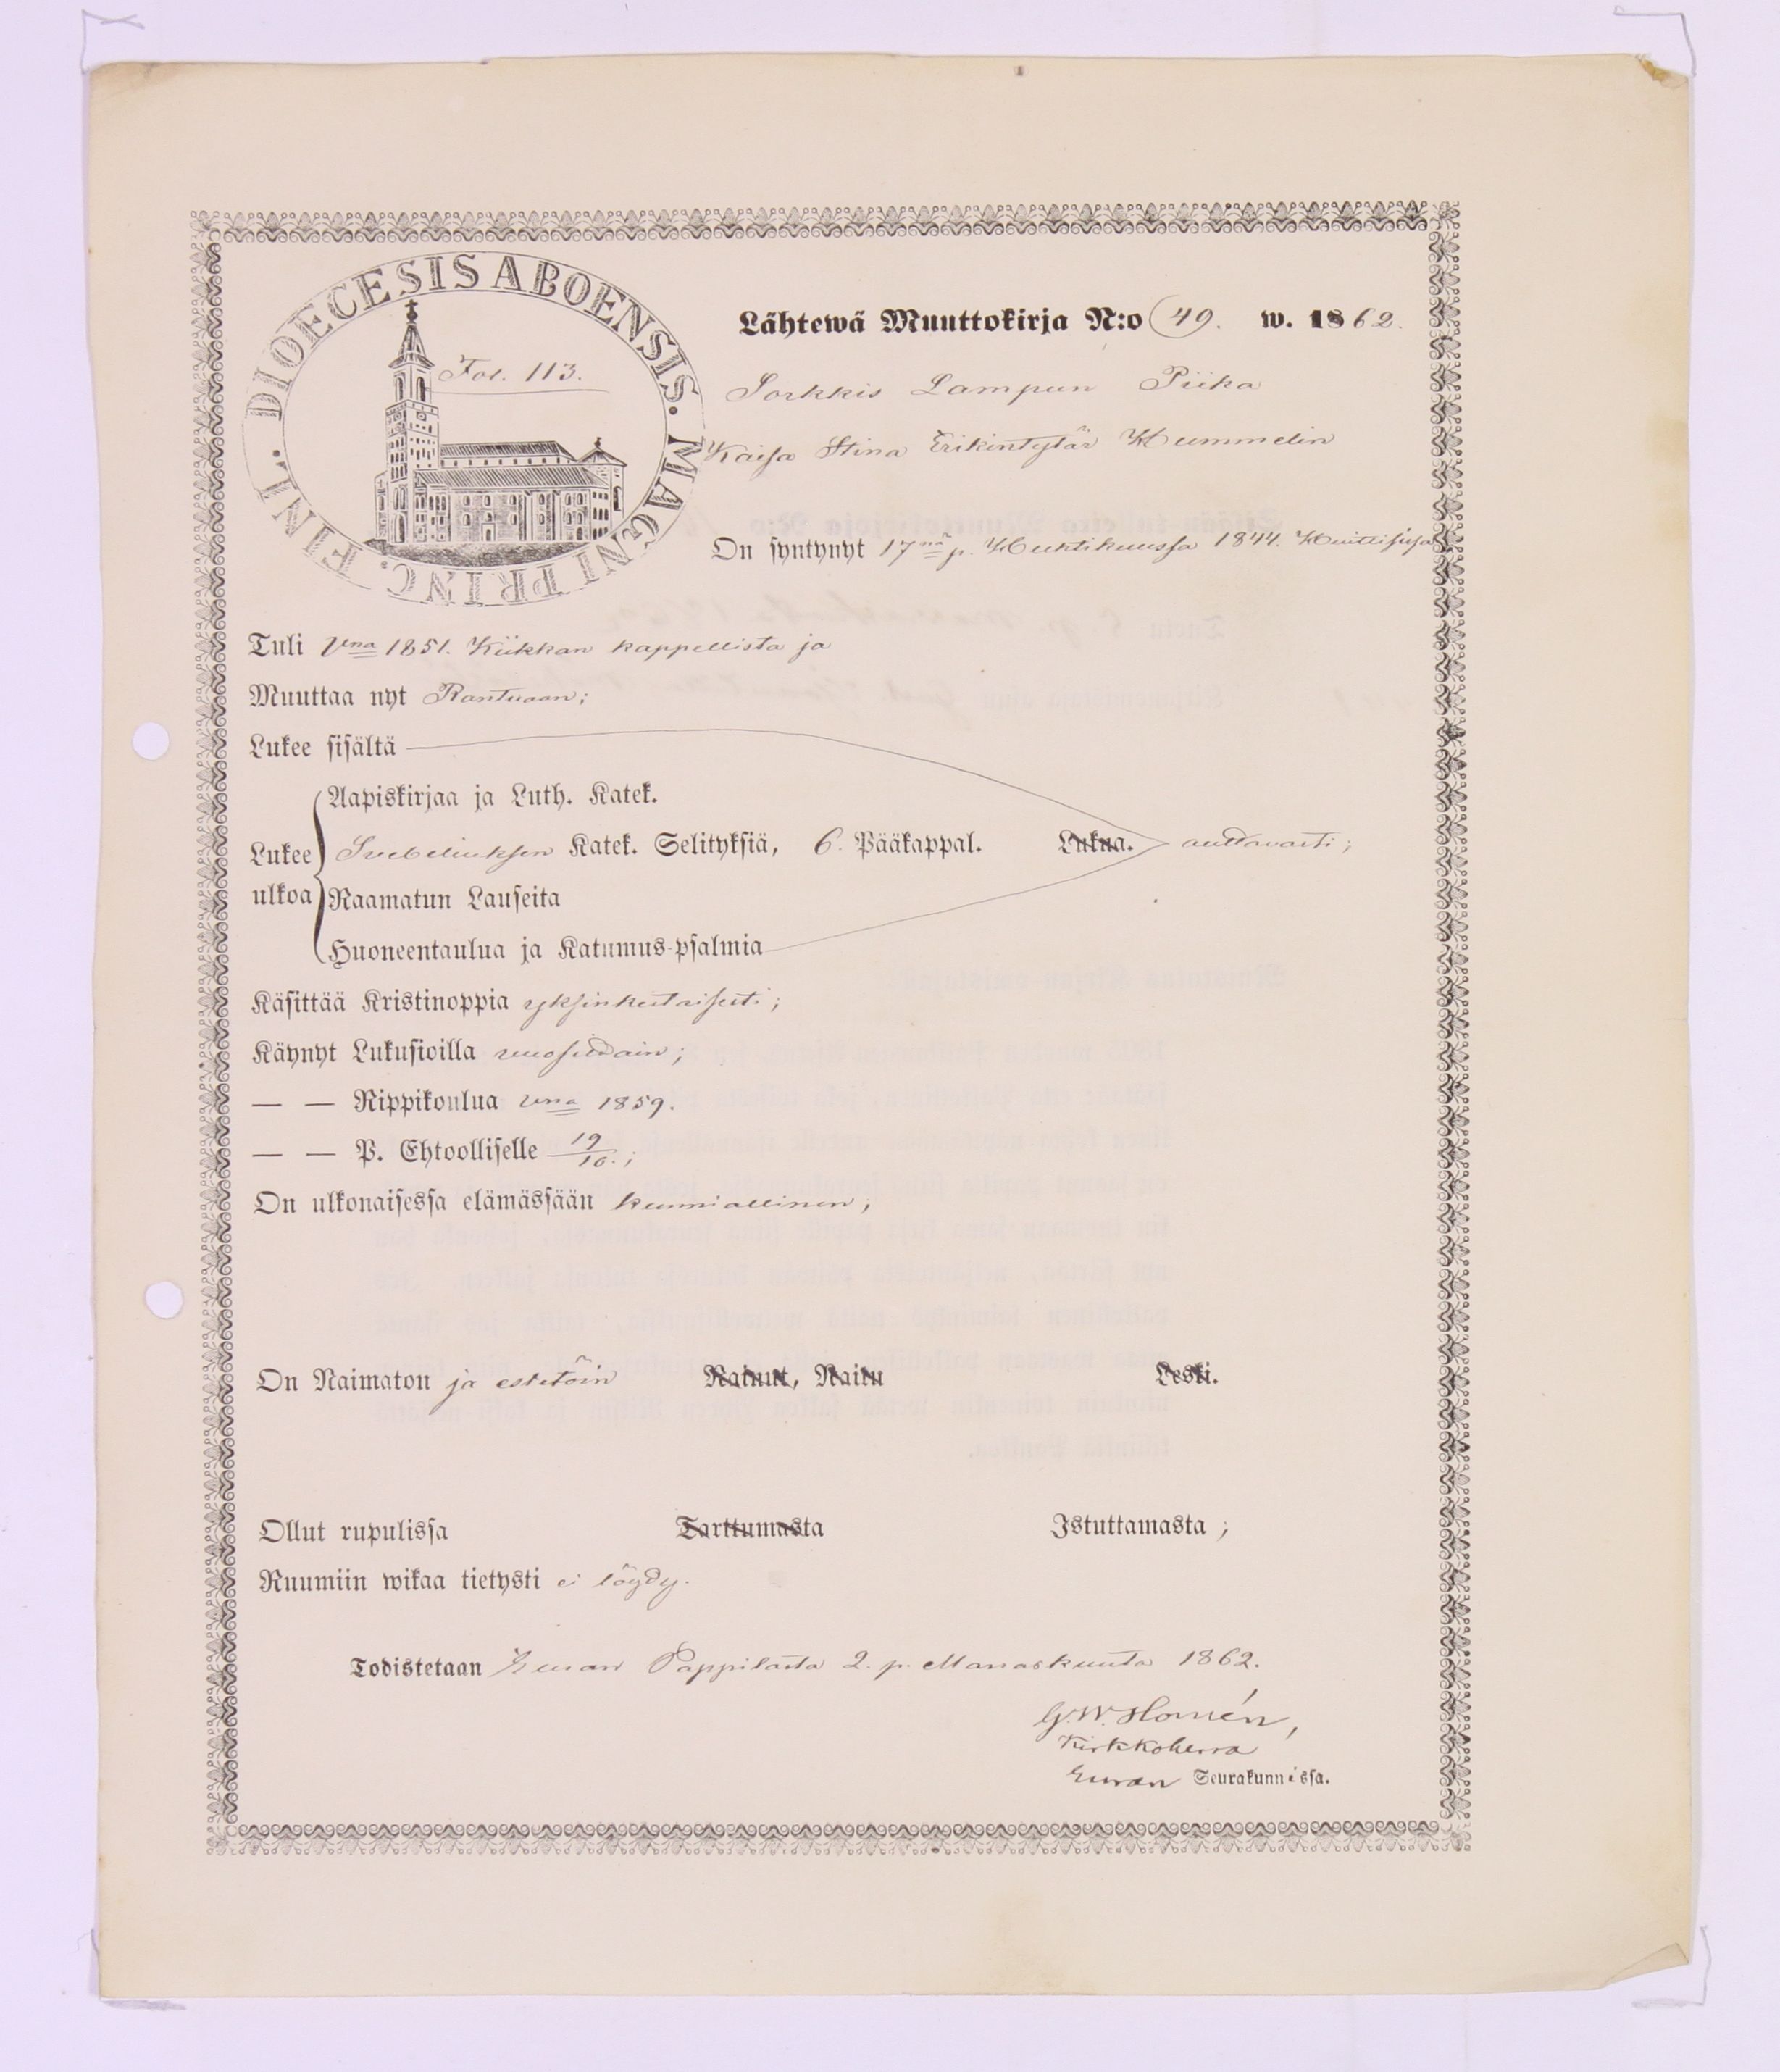 DIOECESIS ABOENSIS. MAGNI PRINC. FINL.
Fol. 113.
Lähtewä Muuttokirja N:o 49. w. 1862.
Sorkkis Lampun Piika
Kaisa Stina Erikintytär Hummelin
On syntynyt 17nä p. Huhtikuussa 1844. Huittisissa
Tuli vna 1851. Kiikkan kappellista ja
Muuttaa nyt Rantuaan;
Lukee sisältä
Aapiskirjaa ja Luth. Katek.
Lukee ulkoa Svebeliuksen Katek. Selityksiä, 6. Pääkappal. Lukua. auttavasti;
Raamatun Lauseita
Huoneentaulua ja Katumus-psalmia
Käsittää Kristinoppia yksinkertaisesti;
Käynyt Lukusioilla vuosittain;
— — Rippikoulua vna 1859.
— — P. Ehtoolliselle 19/10.;
On ulkonaisessa elämässään kunniallinen;
On Naimaton ja estetöin Nainut, Naitu Leski.
Ollut rupulissa Tarttumasta Istuttamasta;
Ruumiin wikaa tietysti ei löydy.
Todistetaan Euran Pappilasta 2. p. Marraskuuta 1862.
G. W. Homén,
Kirkkoherra
Euran Seurakunnissa.